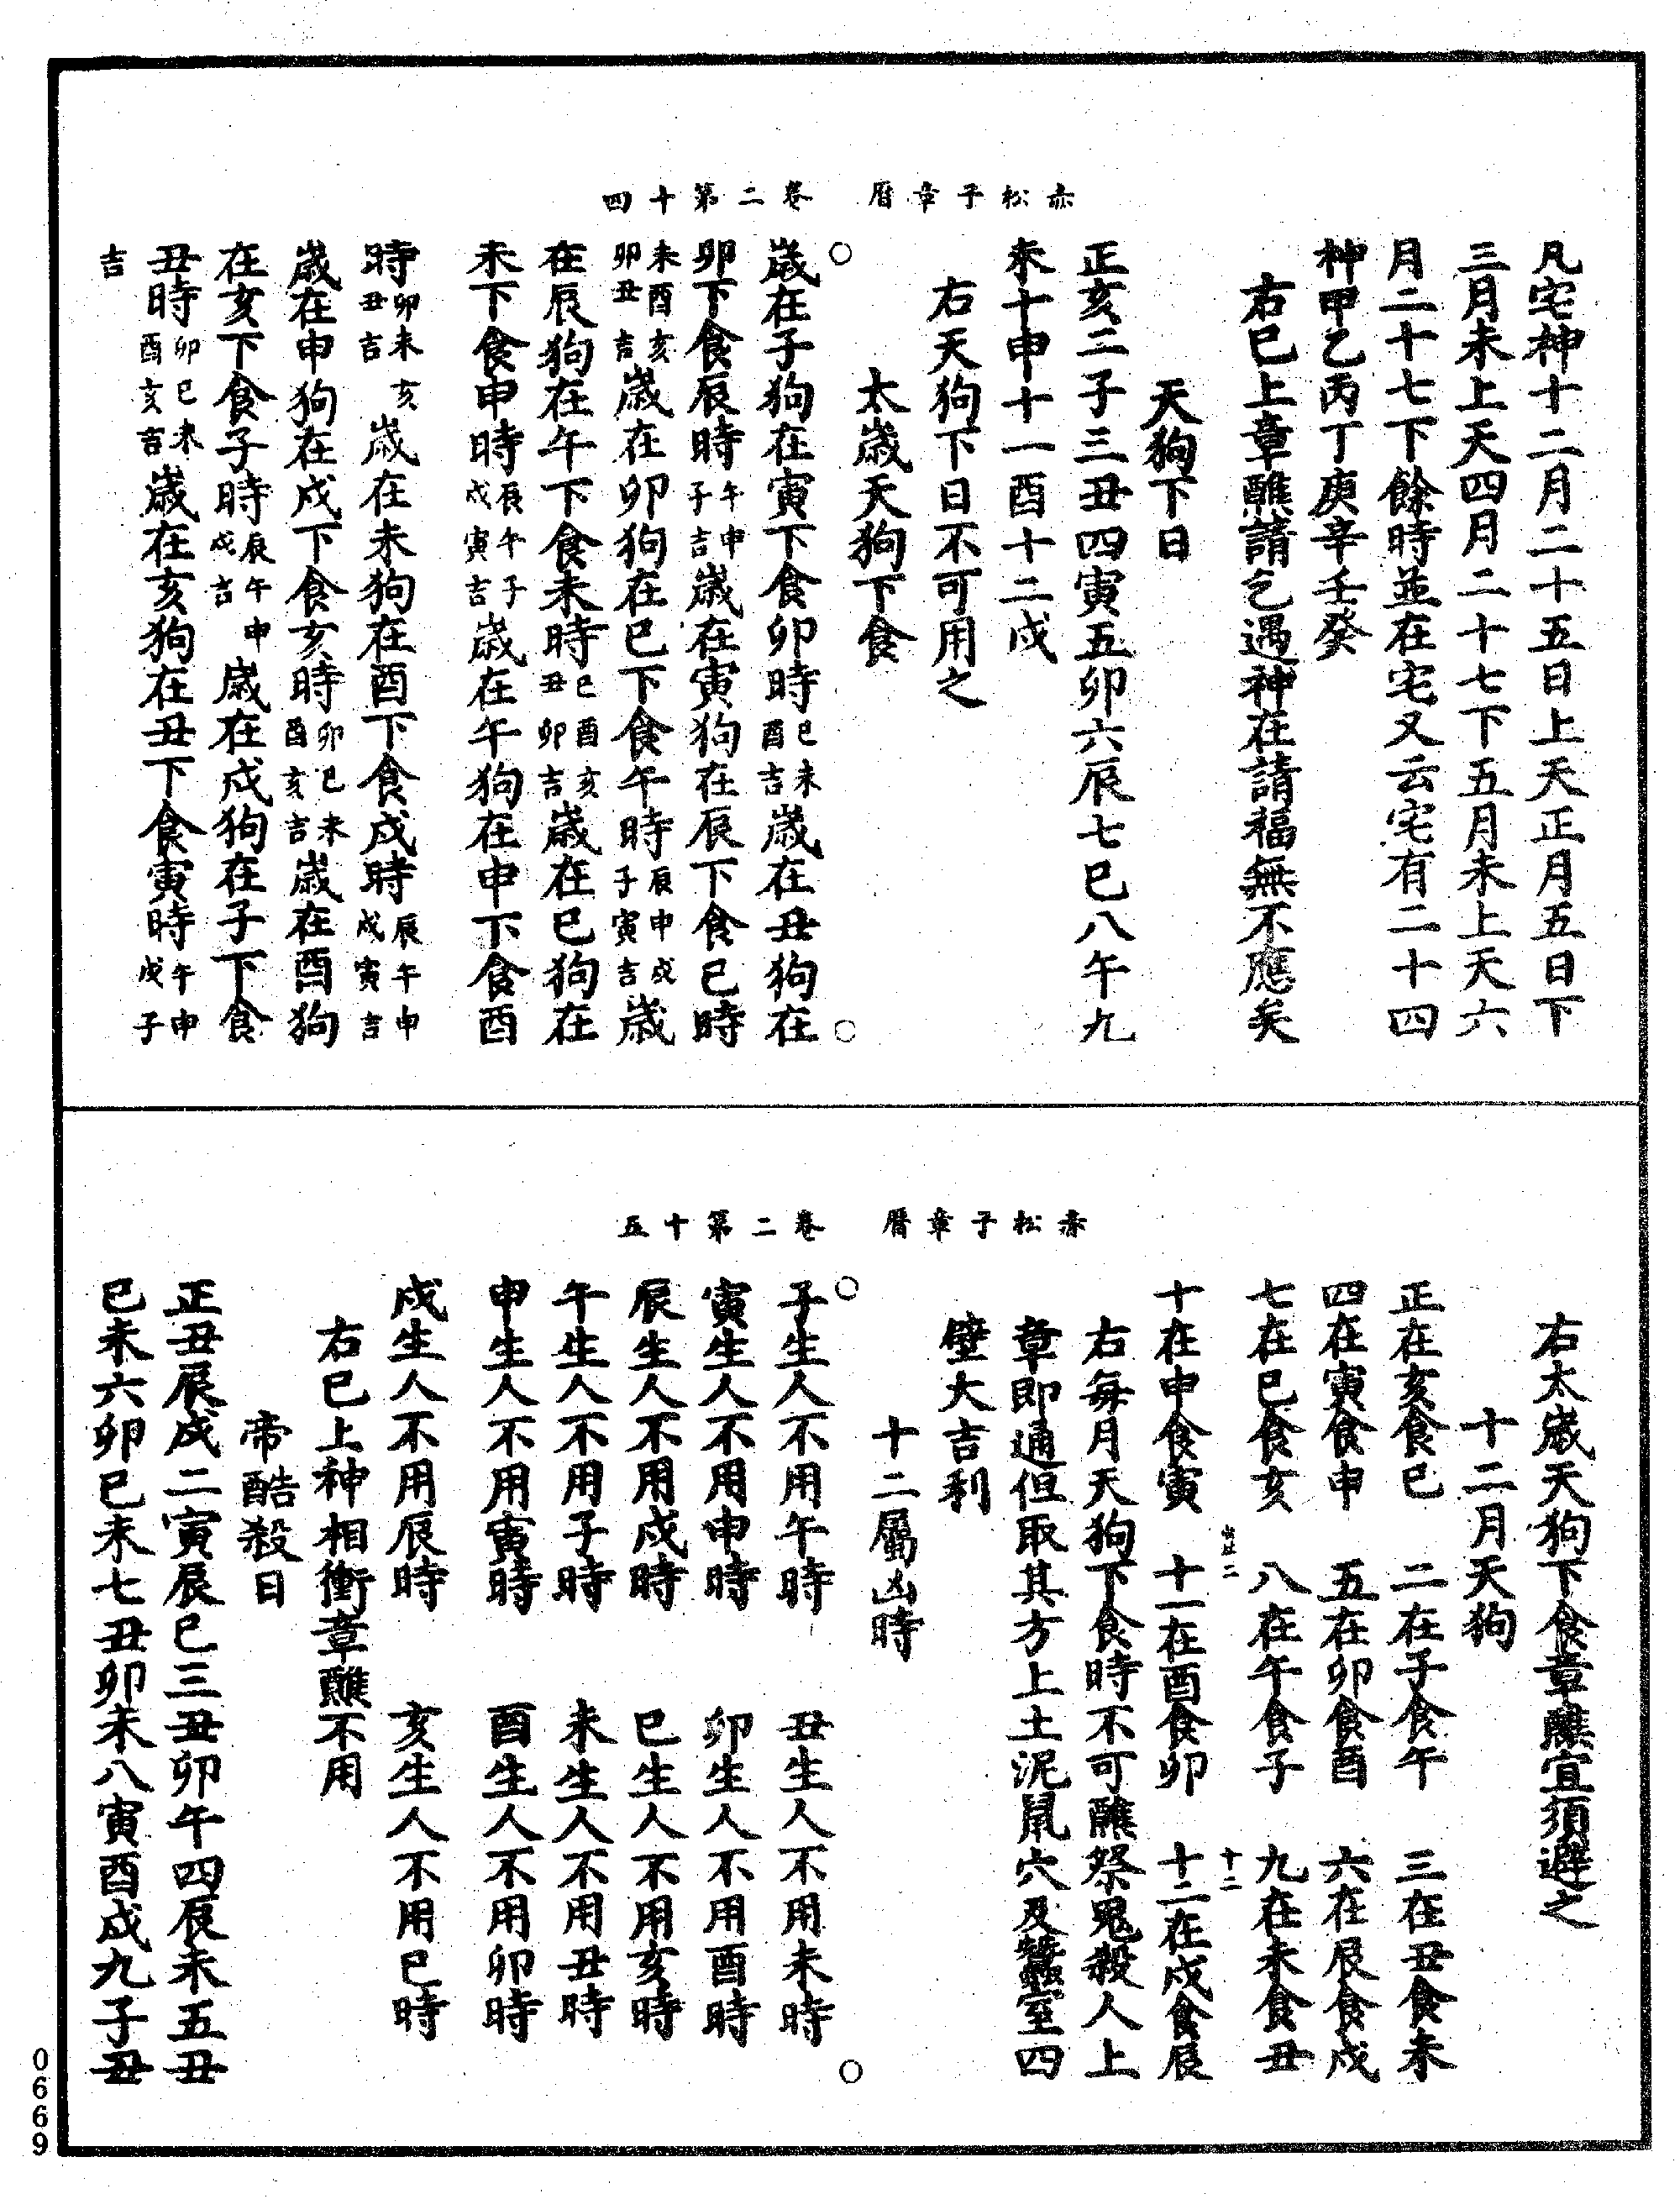 赤松子章曆　卷二第十四
凡宅神十二月二十五日上天正月五日下
三月未上天四月二十七下五月未上天六
月二十七下餘時並在宅又云宅有二十四
神甲乙丙丁庚辛壬癸
右已上章醮請乞遇神在請福無不應矣
天狗下日
正亥二子三丑四寅五卯六辰七巳八午九
未十申十一酉十二戌
右天狗下日不可用之
太歲天狗下食
歲在子狗在寅下食卯時巳未酉吉歲在丑狗在
卯下食辰時午申子吉歲在寅狗在辰下食巳時
未酉亥卯丑吉歲在卯狗在巳下食午時辰申戌子寅吉歲
在辰狗在午下食未時巳酉亥丑卯吉歲在巳狗在
未下食申時辰午子戌寅吉歲在午狗在申下食酉
時卯未亥丑吉歲在未狗在酉下食戌時辰午申戌寅吉
歲在申狗在戌下食亥時卯巳未酉亥吉歲在酉狗
在亥下食子時辰午申戌吉歲在戌狗在子下食
丑時卯巳未酉亥吉歲在亥狗在丑下食寅時午申戌子
吉
赤松子章曆　卷二第十五
右太歲天狗下食章醮宜須避之
十二月天狗
正在亥食巳　二在子食午　三在丑食未
四在寅食申　五在卯食酉　六在辰食戌
七在巳食亥　八在午食子　九在未食丑
十二
十在申食寅　十一在酉食卯　十二在戌食辰
右每月天狗下食時不可醮祭鬼殺人上
章即通但取其方上土泥鼠穴及蠶室四
壁大吉利
十二屬凶時
子生人不用午時　丑生人不用未時
寅生人不用申時　卯生人不用酉時
辰生人不用戌時　巳生人不用亥時
午生人不用子時　未生人不用丑時
申生人不用寅時　酉生人不用卯時
戌生人不用辰時　亥生人不用巳時
右已上神相衝章醮不用
帝酷殺日
正丑辰戌二寅辰巳三丑卯午四辰未五丑
巳未六卯巳未七丑卯未八寅酉戌九子丑
0669